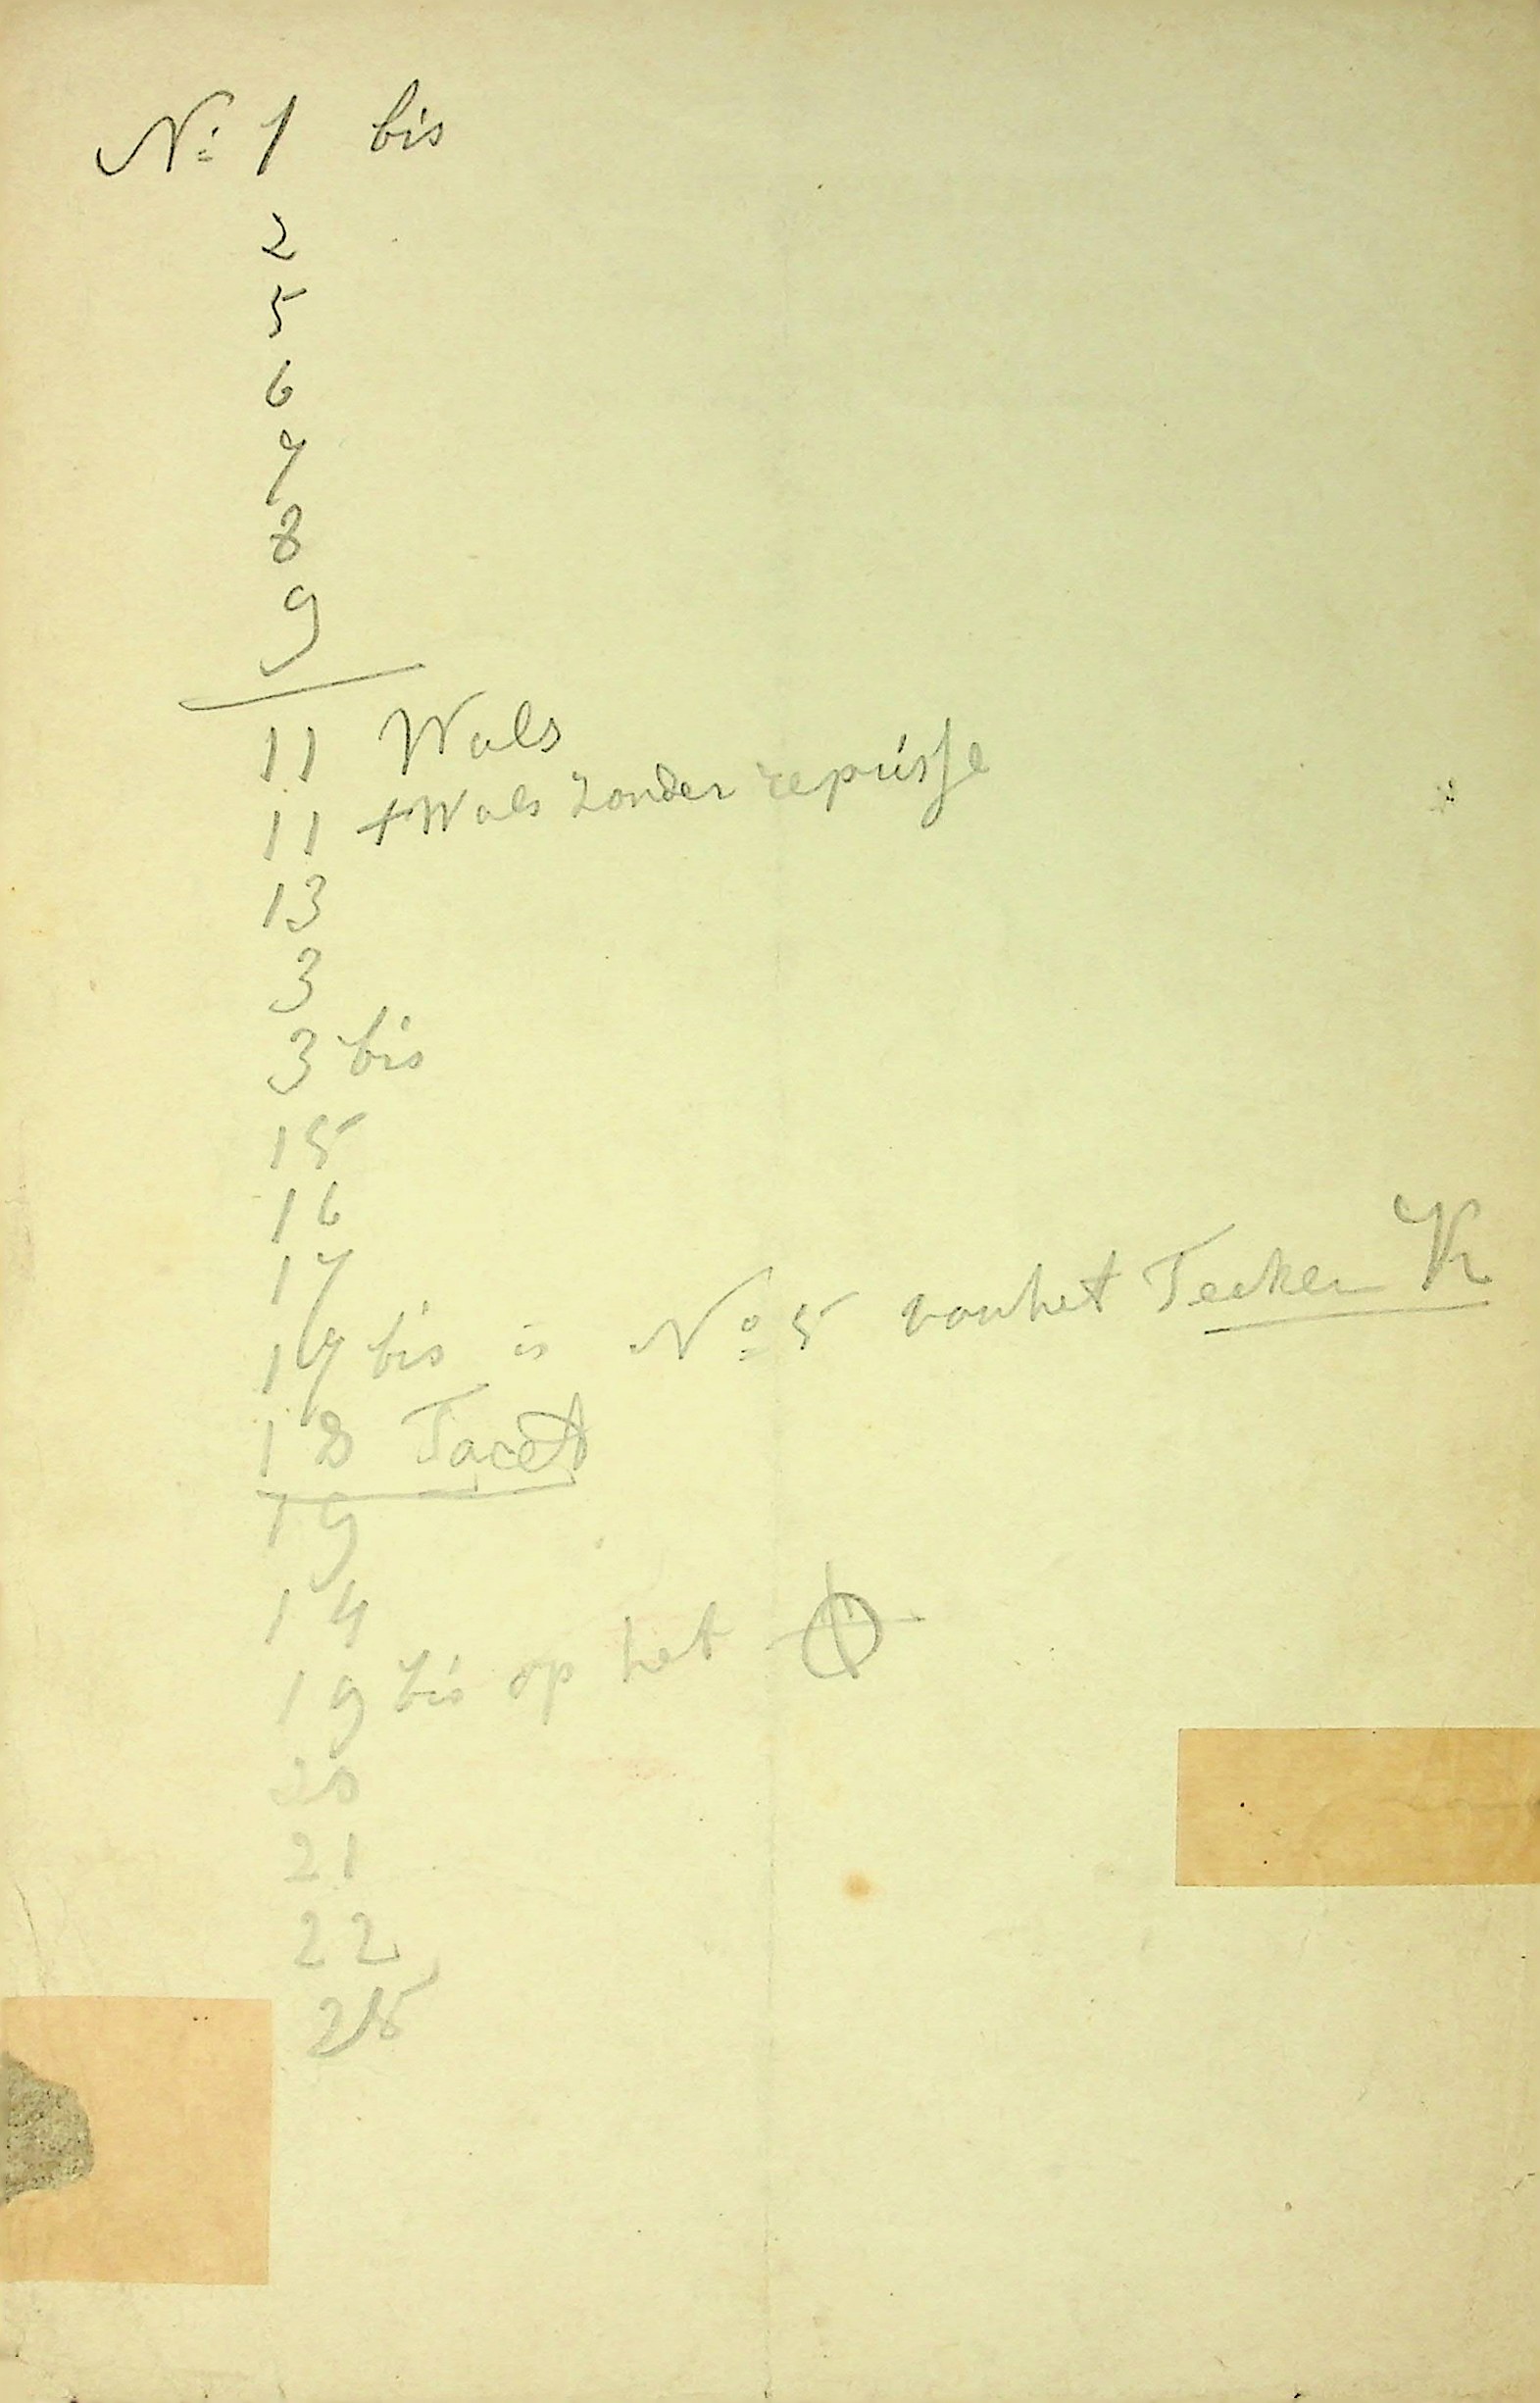 Nº 1 bis
2
5
6
7
8
9
11 Wals
11 + Wals zonder reprisse
13
3
3 bis
15
16
17
17 bis is Nº 5 van het Teeken
18 Tacet
19
14
19 bis op het
20
21
22